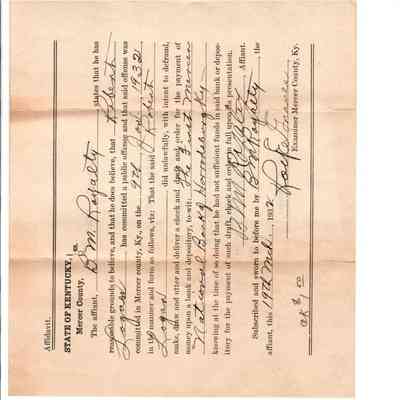 Affidavit.
STATE OF KENTUCKY, } ss.
Mercer County,
The affiant, D. M. Royalty states that he has
reasonable grounds to believe, and that he does believe, that Robert
Logan has committed a public offense and that said offense was
committed in Mercer county, Ky., on the 9th Jan 1932
in the manner and form as follows, viz: That the said Robert
Logan did unlawfully, with intent to defraud,
make, draw and utter and deliver a check and draft and order for the payment of
money upon a bank and depository, to-wit: The First Mercer
National Bank, Harrodsburg Ky.
knowing at the time of so doing that he had not sufficient funds in said bank or depos-
itory for the payment of such draft, check and order in full upon its presentation.
D. M. Royalty Affiant.
Subscribed and sworn to before me by D. M. Royalty, the
affiant, this 19th Mch. 1932

Examiner Mercer County, Ky.